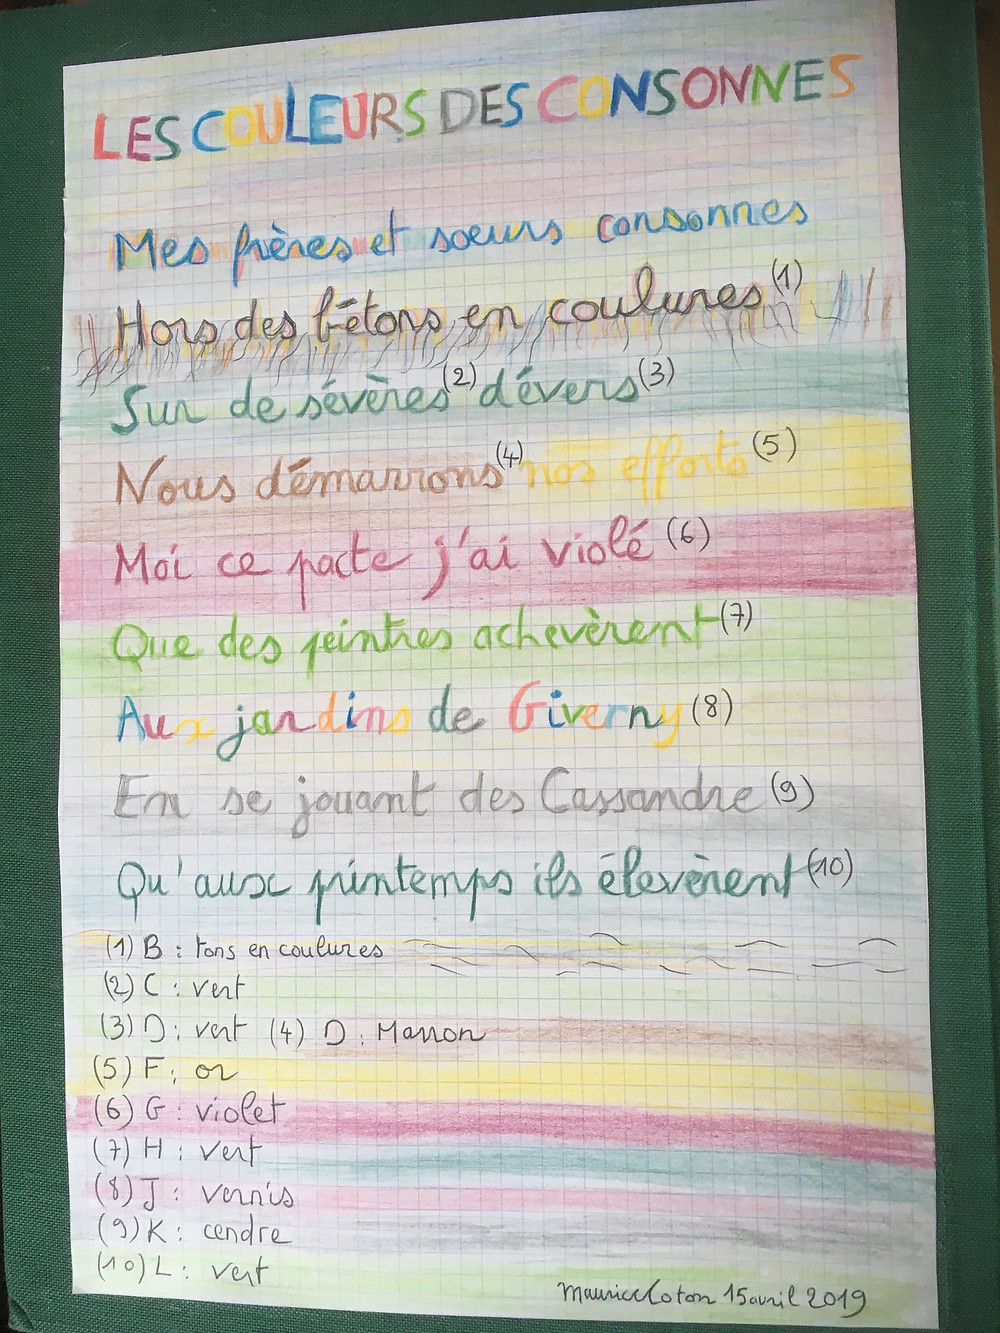 LES COULEURS DES CONSONNES
Mes frères et soeurs consonnes
Hors des bétons en coulures (1)
Sur de sévères (2) dévers (3)
Nous démarrons (4) nos efforts (5)
Moi ce pacte j'ai violé (6)
Que des peintres achevèrent (7)
Aux jardins de Giverny (8)
En se jouant des Cassandre (9)
Qu'aux printemps ils élevèrent (10)
(1) B : tons en coulures
(2) C : vert
(3) D : vert (4) D : Marron
(5) F : or
(6) G : violet
(7) H : vert
(8) J : vernis
(9) K : cendre
(10) L : vert
Maurice Coton 15 avril 2019